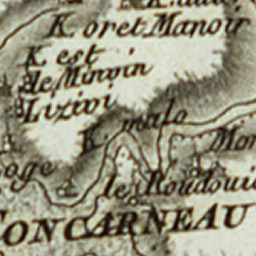 K. oret Manoir
K. est
le Minvin
Lizivi
K. malo
Mor
oge
le Roudoui
CONCARNEAU